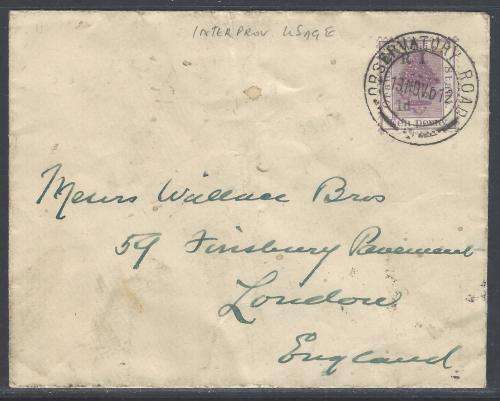 INTERPROV USAGE
OBSERVATORY ROAD
13 NOV 01
1d
Messrs Wallace Bros
59 Finsbury Pavement
London
England